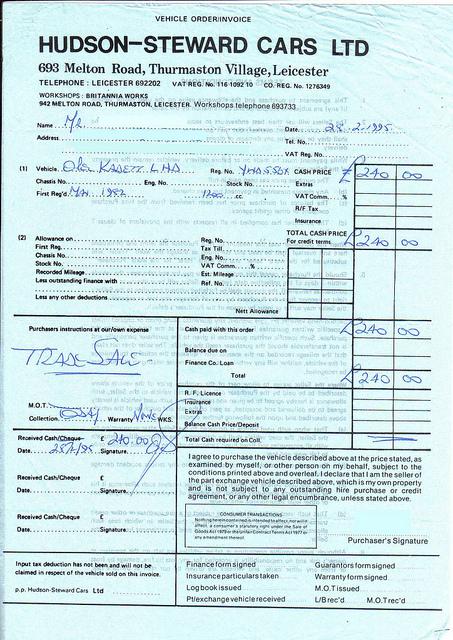 VEHICLE ORDER/INVOICE
HUDSON-STEWARD CARS LTD
693 Melton Road, Thurmaston Village, Leicester
TELEPHONE : LEICESTER 692202 VAT REG. No. 116 1092 10 CO. REG. No. 1276349
WORKSHOPS : BRITANNIA WORKS
942 MELTON ROAD, THURMASTON, LEICESTER. Workshops telephone 693733
Name Mr Date 28.2.1995
Address Tel. No.
VAT Reg. No.
(1) Vehicle Opel KADETT LHD Reg. No. CASH PRICE £240 00
Chassis No. Eng. No. Stock No. Extras
First Reg'd. MAY 1982 1200 cc. VAT Comm. %
R/F Tax
Insurance
TOTAL CASH PRICE
(2) Allowance on Reg. No. For credit terms £240 00
First Reg. Tax Till
Chassis No. Eng. No.
Stock No. VAT Comm. %
Recorded Mileage Est. Mileage
Less outstanding finance with Ref. No.
Less any other deductions
Nett Allowance
Purchasers instructions at our/own expense Cash paid with this order £240 00
TRADE SALE
Balance due on
Finance Co. Loan
Total £240 00
R.F. Licence
Insurance
M.O.T. Extras
Collection Warranty None WKS. Balance Cash Price/Deposit
Received Cash/Cheque £ 240.00 Total Cash required on Coll.
Date Signature
I agree to purchase the vehicle described above at the price stated, as
examined by myself, or other person on my behalf, subject to the
conditions printed above and overleaf. I declare that I am the seller of
the part exchange vehicle described above, which is my own property
and is not subject to any outstanding hire purchase or credit
agreement, or any other legal encumbrance, unless stated above.
Received Cash/Cheque £
Date Signature
Received Cash/Cheque £
Date Signature
CONSUMER TRANSACTIONS
Nothing herein contained is intended to affect, nor will it
affect, a consumer's statutory right under the Sale of
Goods Act 1979 or the Unfair Contract Terms Act 1977 or
any amendment thereof.
Purchaser's Signature
Input tax deduction has not been and will not be
claimed in respect of the vehicle sold on this invoice.
p.p. Hudson-Steward Cars Ltd
Finance form signed Guarantors form signed
Insurance particulars taken Warranty form signed
Log book issued M.O.T issued
Pt/exchange vehicle received L/B rec'd M.O.T rec'd